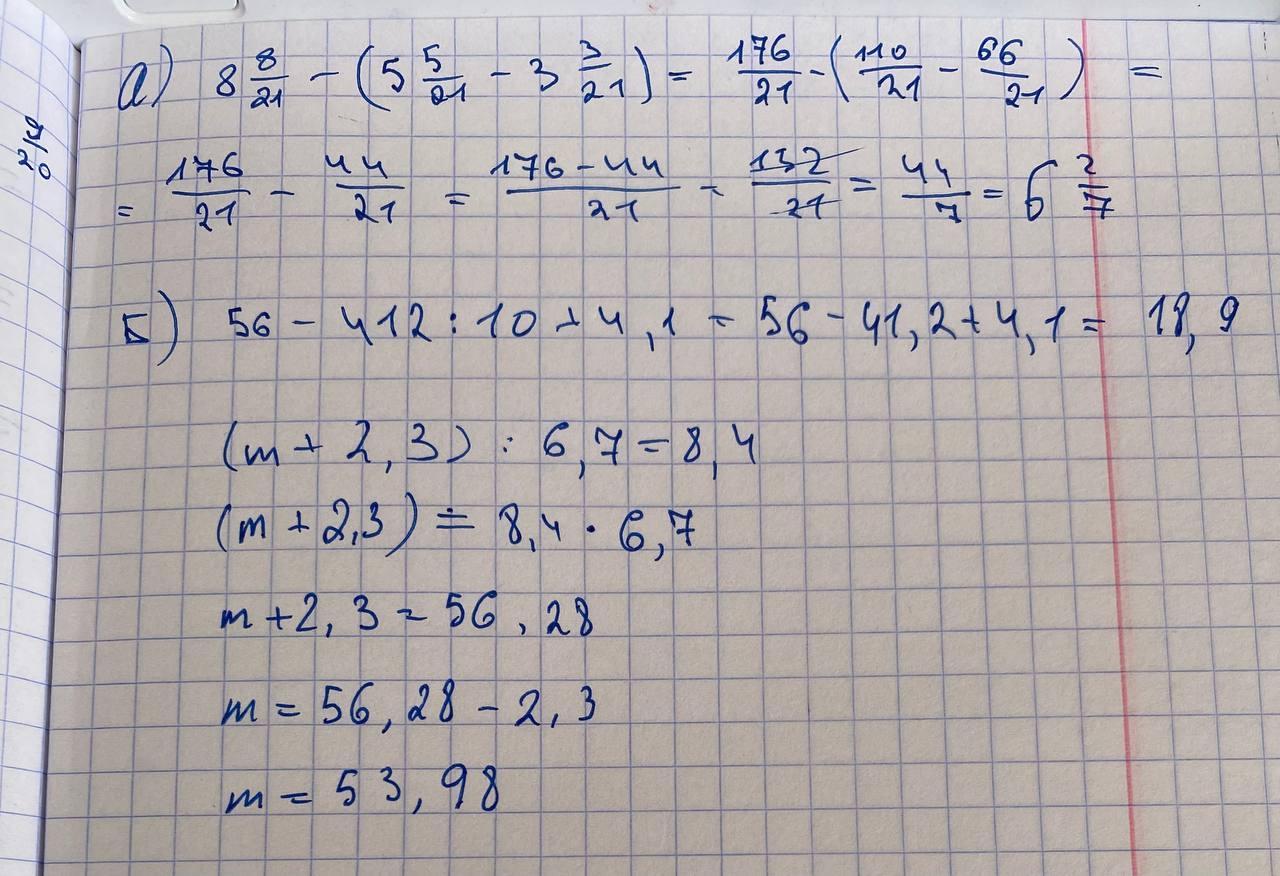 а) 8 8/21 - (5 5/21 - 3 3/21) = 176/21 - (110/21 - 66/21) =
= 176/21 - 44/21 = 176-44/21 = 132/21 = 44/7 = 6 2/7
Б) 56 - 412 : 10 + 4,1 = 56 - 41,2 + 4,1 = 18,9
(m + 2,3) : 6,7 = 8,4
(m + 2,3) = 8,4 · 6,7
m + 2,3 = 56,28
m = 56,28 - 2,3
m = 53,98